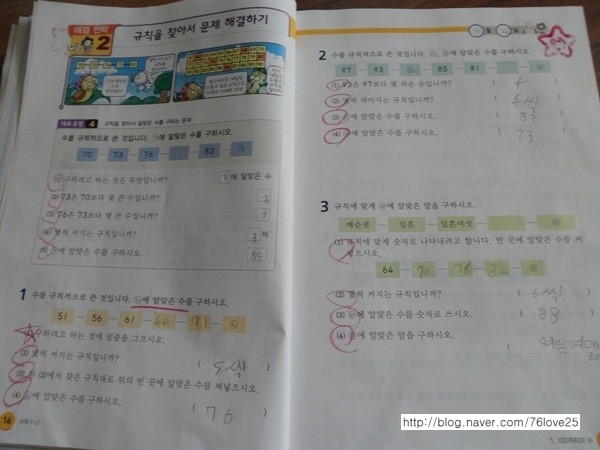 해결 전략
2
규칙을 찾아서 문제 해결하기
대표 유형 4 규칙을 찾아서 알맞은 수를 구하는 문제
수를 규칙적으로 쓴 것입니다. ㉠에 알맞은 수를 구하시오.
70 73 76 82 ㉠
(1) 구하려고 하는 것은 무엇입니까? ㉠에 알맞은 수
(2) 73은 70보다 몇 큰 수입니까? 3
(3) 76은 73보다 몇 큰 수입니까? 3
(4) 몇씩 커지는 규칙입니까? 3 씩
(5) ㉠에 알맞은 수를 구하시오. 85
1 수를 규칙적으로 쓴 것입니다. ㉡에 알맞은 수를 구하시오.
51 56 61 66 71
(1) 구하려고 하는 것에 밑줄을 그으시오.
(2) 몇씩 커지는 규칙입니까? ( 5씩 )
(3) 위 (2)에서 찾은 규칙대로 위의 빈 곳에 알맞은 수를 써넣으시오.
(4) 에 알맞은 수를 구하시오. ( 76 )
16 수학 1-2
2 수를 규칙적으로 쓴 것입니다. 에 알맞은 수를 구하시오.
97 93 85 81
(1) 93은 97보다 몇 작은 수입니까? ( 4 )
(2) 몇씩 작아지는 규칙입니까? ( 4씩 )
(3) 에 알맞은 수를 구하시오. ( 89 )
(4) 에 알맞은 수를 구하시오. ( 73 )
3 규칙에 맞게 ㉮에 알맞은 말을 구하시오.
예순넷 일흔 일흔여섯 ㉮
(1) 규칙에 맞게 숫자로 나타내려고 합니다. 빈 곳에 알맞은 수를 써넣으시오.
64 70 76 82 ㉮
(2) 몇씩 커지는 규칙입니까? ( 6씩 )
(3) ㉮에 알맞은 수를 숫자로 쓰시오. ( 88 )
(4) ㉮에 알맞은 말을 구하시오. ( 여든여덟 )
1. 100까지의 수
http://blog.naver.com/76love25